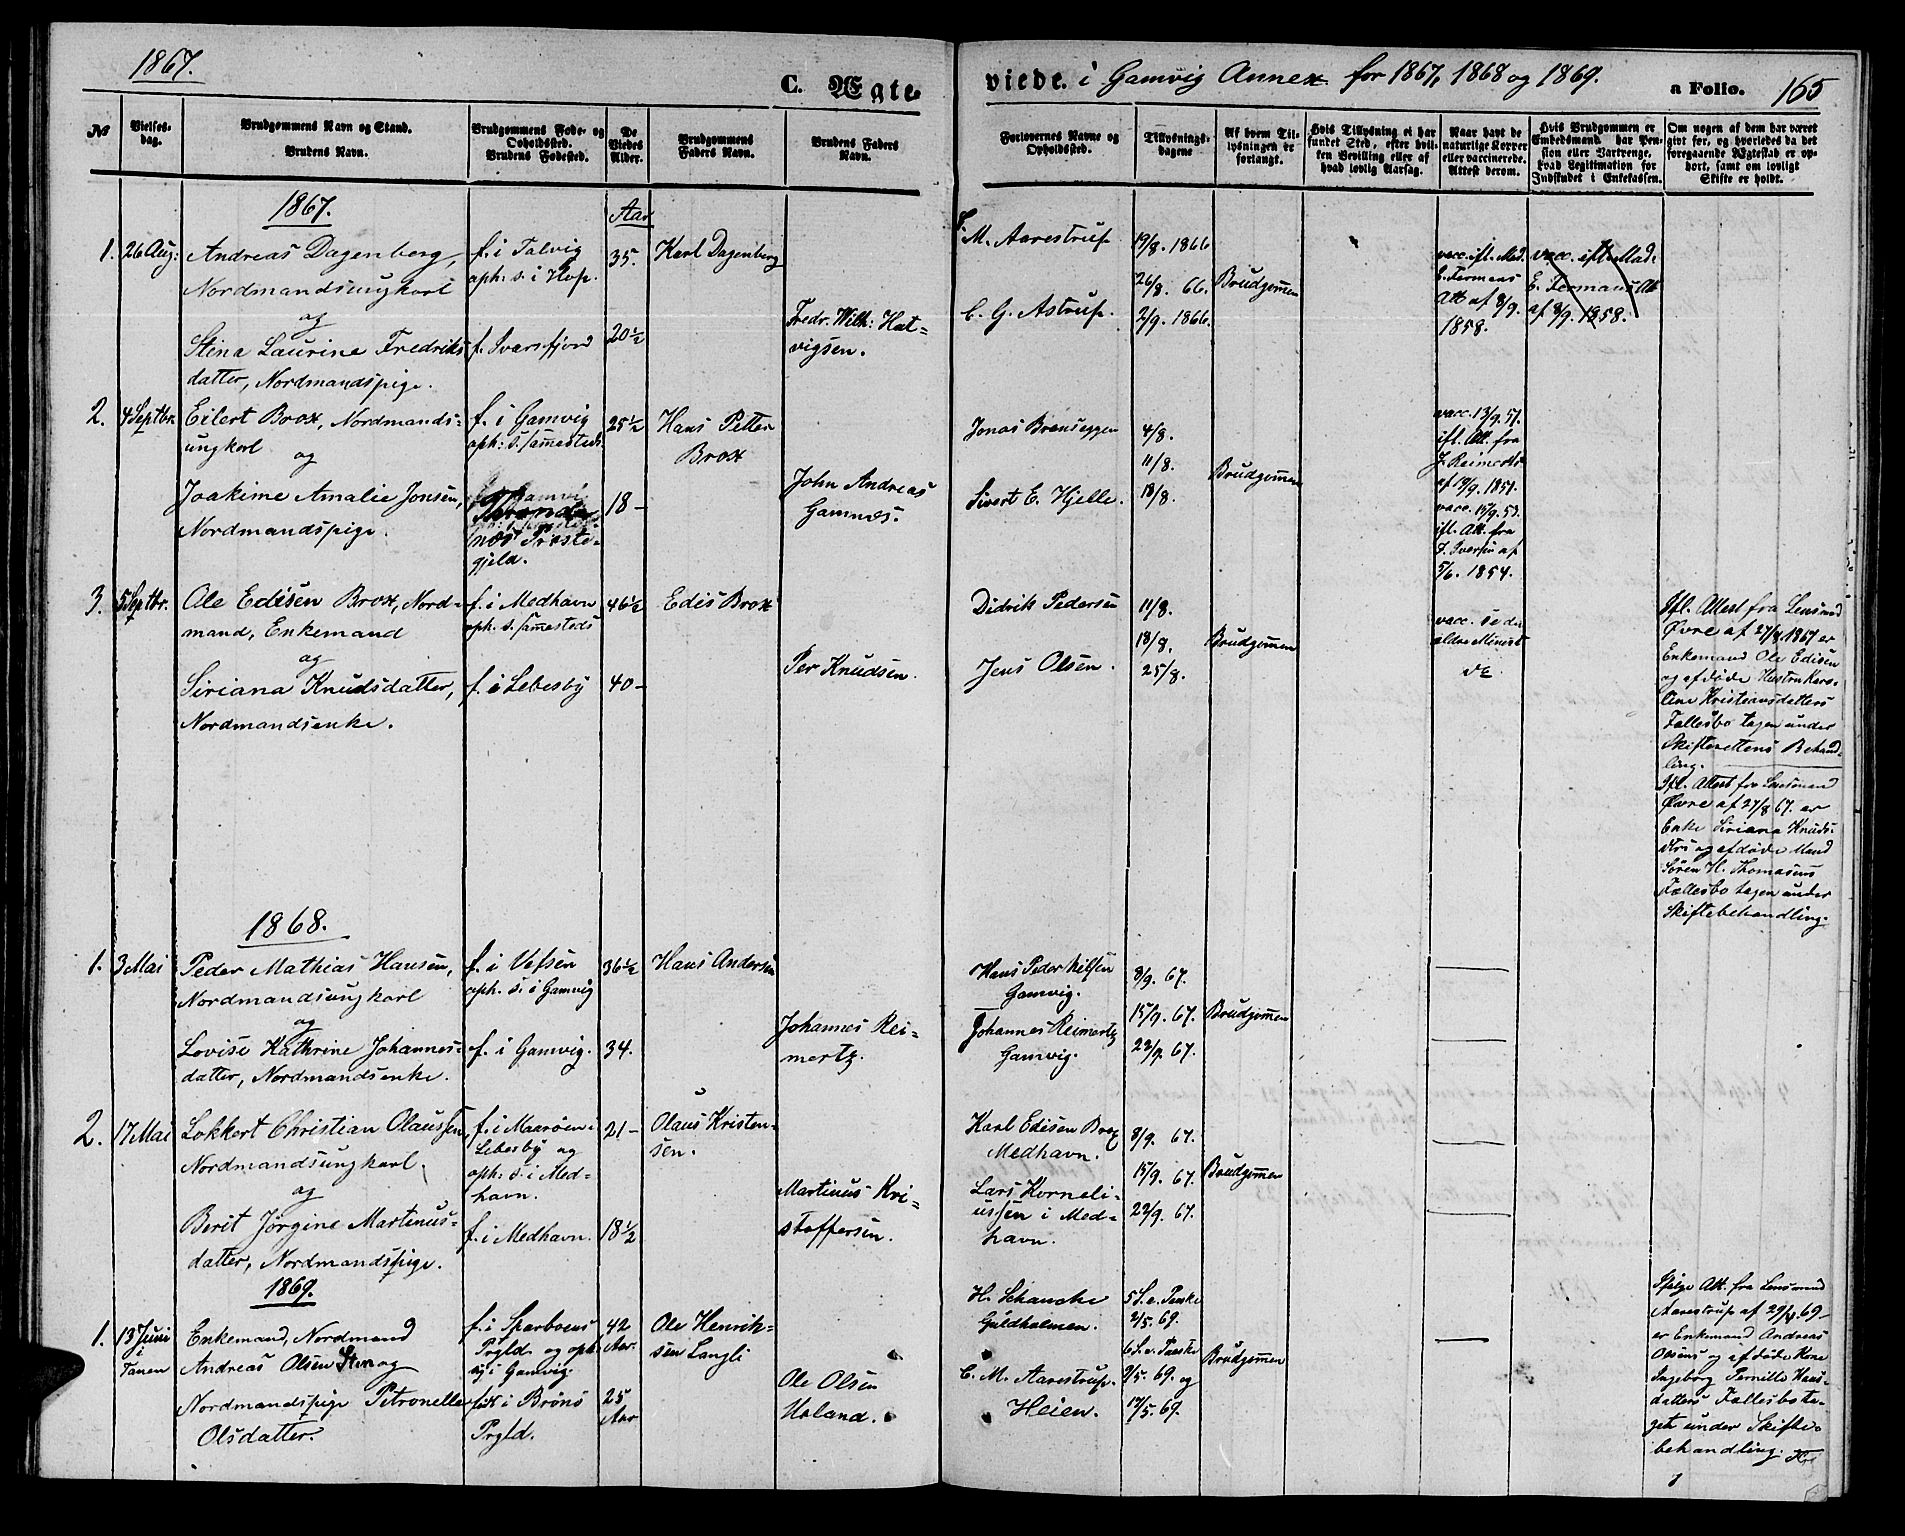 1867.
C. Ægte
viede. i Gamvig Annex for 1867, 1868 og 1869.
a Folio. 165
No
Vielses-
dag.
Brudgommens Navn og Stand.
Brudens Navn.
Brudgommens Føde- og
Opholdssted.
Brudens Fødested.
De
Viedes
Alder.
Brudgommens
Faders Navn.
Brudens Faders
Navn.
Forlovernes Navne og
Opholdssted.
Tillysnings-
dagene
Af hvem Til-
lysningen er
forlangt.
Hvis Tillysning ei har
fundet Sted, efter hvil-
ken Bevilling eller af
hvad lovlig Aarsag.
Naar havt de
naturlige Kopper
eller vaccinerede.
Attest derom.
Hvis Brudgommen er
Embedsmand har Pen-
sion eller Vartpenge,
hvad Legitimation for
Indskudet i Enkekassen.
Om nogen af dem har været
gift før, og hvorledes da det
foregaaende Ægteskab er op-
hørt, samt om lovligt
Skifte er holdt.
1867.
Aar
1. 26 Aug:
Andreas Dagenberg,
Nordmandsungkarl
og
Stina Laurine Fredriks
datter, Nordmandspige.
f. i Talvig
oph. s. i Hop.
f. Svarsfjord
35.
20 1/2
Karl Dagenberg
Fredr. Wilh: Hat-
vigsen.
M. Aarestrup
C. G. Astrup.
19/8. 1866
26/8. 66.
2/9. 1866.
Brudgommen
vacc. ifl. Med.
E. Fermans
Att af 8/9.
1858.
vacc. ifl. Mad.
E. Fermans Att
af 8/9. 1858.
2. 4 Septbr.
Eilert Brox, Nordmands-
ungkarl
og
Joakime Amalie Jonsen,
Nordmandspige.
f. i Gamvig
oph: s. sammesteds
Trondæ
næs Præste-
gjeld.
25 1/2
18 -
Hans Petter
Brox
John Andreas
Gamnæs.
Jonas Brenseggen
Sivert E. Hjelle.
4/8.
11/8.
18/8.
Brudgommen
vacc. 13/9. 51.
ifl. Att. fra
J. Reimertz
af 19/9. 1851.
vacc. 15/9. 53.
ifl. Att. fra
J. Iversen af
5/6. 1854.
3. 5 Septbr.
Ole Edisen Brox, Nord-
mand, Enkemand
og
Siriana Knudsdatter,
Nordmandsenke.
f. i Medhavn
oph. s. sammesteds
f. i Lebesby
46 1/2
40 -
Edis Brox
Per Knudsen.
Didrik Pedersen
Jens Olsen.
11/8.
18/8.
25/8.
Brudgommen
vacc. se den
ældre Minist
do
Ifl. Attest fra Lensmand
Øvre af 27/8 1867 er
Enkemand Ole Edisen
og afdøde Hustru Karo-
line Kristiansdatters
Fællesbo tagen under
Skifterettens Behand-
ling.
Ifl. Attest fra Lensmand
Øvre af 27/8 67. er
Enke Siriana Knuds-
dtrs og afdøde Mand
Søren H. Thomasens
Fællesbo tagen under
Skiftebehandling.
1868.
1. 3 Mai
Peder Mathias Hansen,
Nordmandsungkarl
og
Lovise Kathrine Johannes-
datter, Nordmandsenke.
f. i Vefsen
oph. s. i Gamvig
f. i Gamvig.
36 1/2
34.
Hans Andersen
Johannes Rei-
mertz.
Hans Peder Nilsen
Gamvig.
Johannes Reimertz
Gamvig.
8/9. 67.
15/9. 67.
22/9. 67.
Brudgommen
2. 17 Mai
Lokkert Christian Olaussen,
Nordmandsungkarl.
og
Berit Jørgine Martinus-
datter, Nordmandspige.
f. i Maarøen i
Lebesby og
oph: s. i Med-
havn.
f. i Medhavn.
21 -
18 1/2
Olaus Kristen-
sen.
Martinus Kri-
stoffersen.
Karl Edisen Brox
Medhavn.
Lars Korneli-
ussen i Med-
havn.
8/9. 67.
15/9. 67.
22/9. 67.
Brudgommen
1869.
1. 13 Juni
i
Tanen
Enkemand, Nordmand
Andreas Olsen Sten og
Nordmandspige Petronelle
Olsdatter.
f. i Sparboens
Prgld og oph
s. i Gamvig.
født i Brøns
Prgld.
42
Aar.
25
Aar
Ole Henrik-
sen Langli
Ole Olsen
Haland.
H. Schancke
Guldholmen.
C. M. Aarestrup.
Heien.
5 S. e. Paaske
2/5. 69.
6 S. e. Paaske
9/5. 69. og
17/5. 69.
Brudgommen
Ifølge Att. fra Lensmand
Aarestrup af 29/4 69
er Enkemand Andreas
Olsens og afdøde Kone
Ingeborg Pernille Hans-
datters Fællesbo ta-
get under Skifte-
behandling.